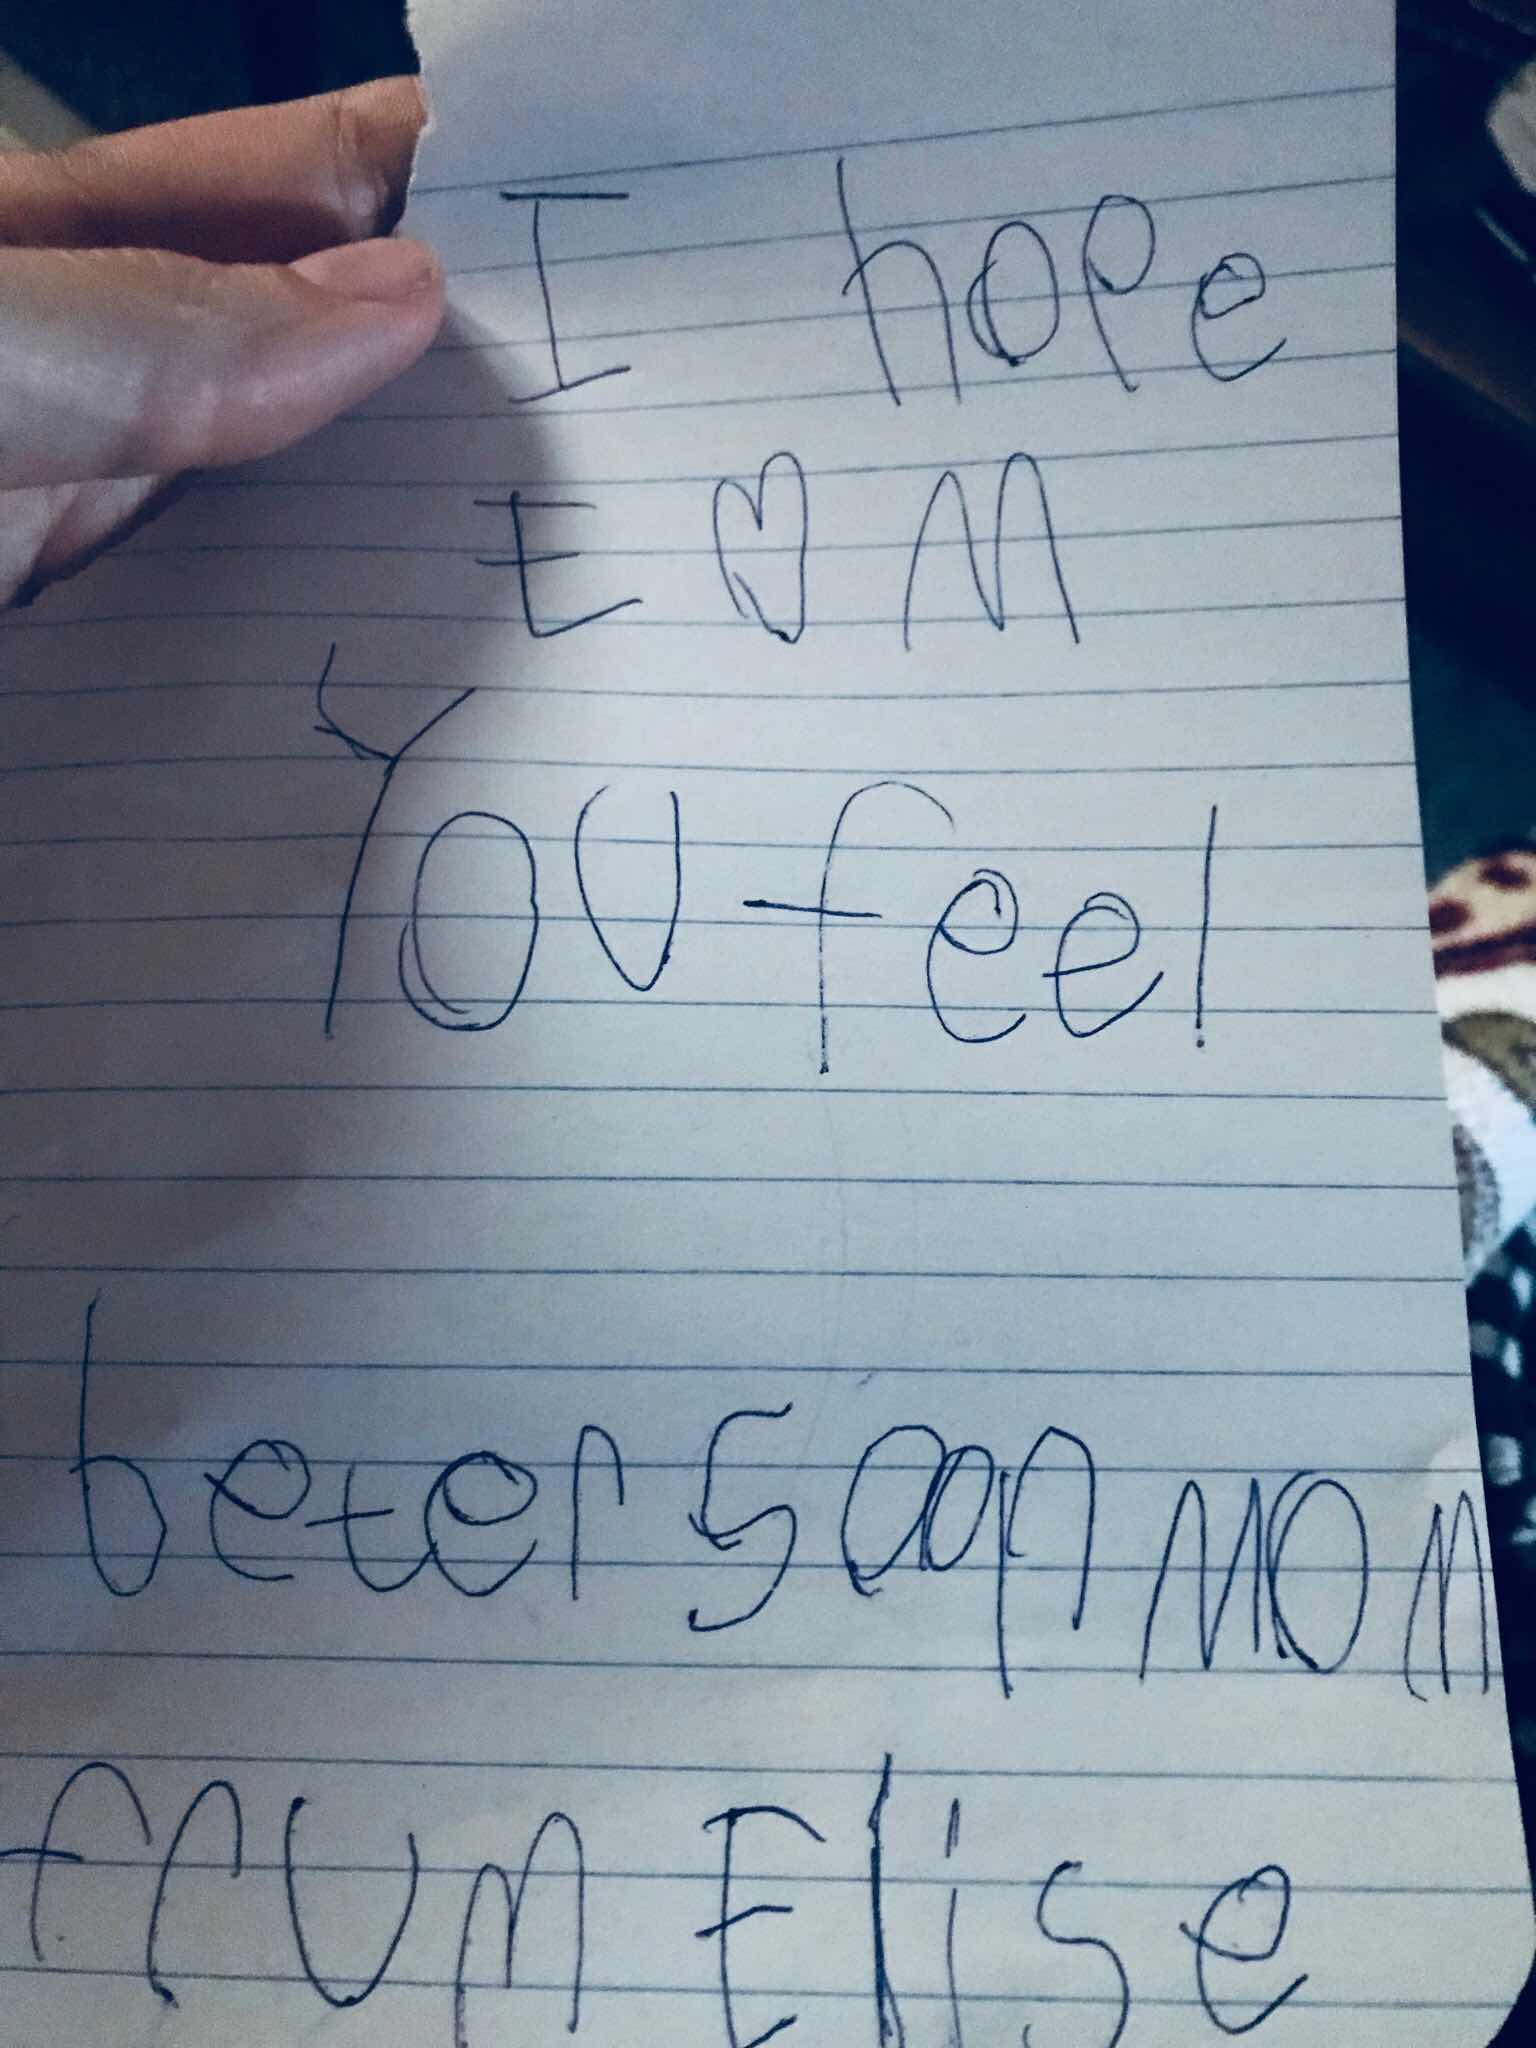 I hope
E ♡ M
You feel
beter soon mom
frum Elise